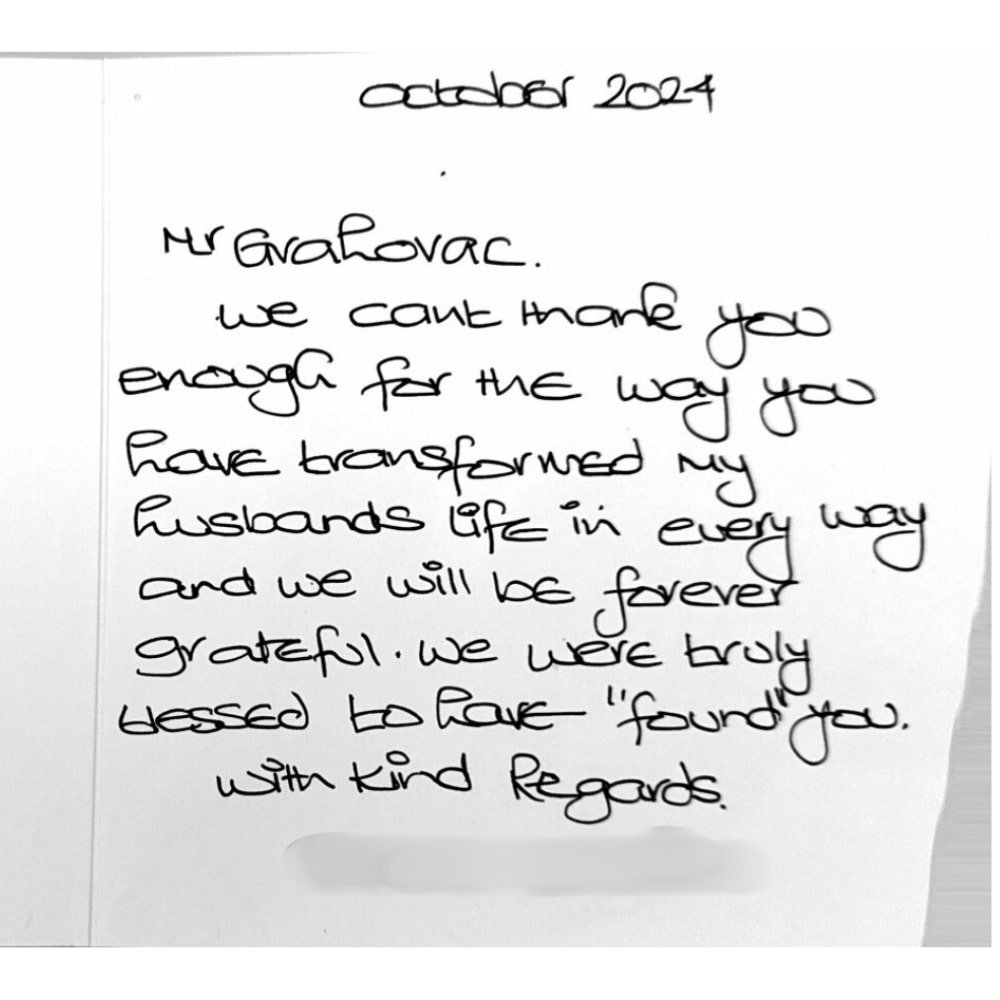 october 2024
Mr Grahovac.
we cant thank you
enough for the way you
have transformed my
husbands life in every way
and we will be forever
grateful. we were truly
blessed to have "found" you.
with kind Regards.